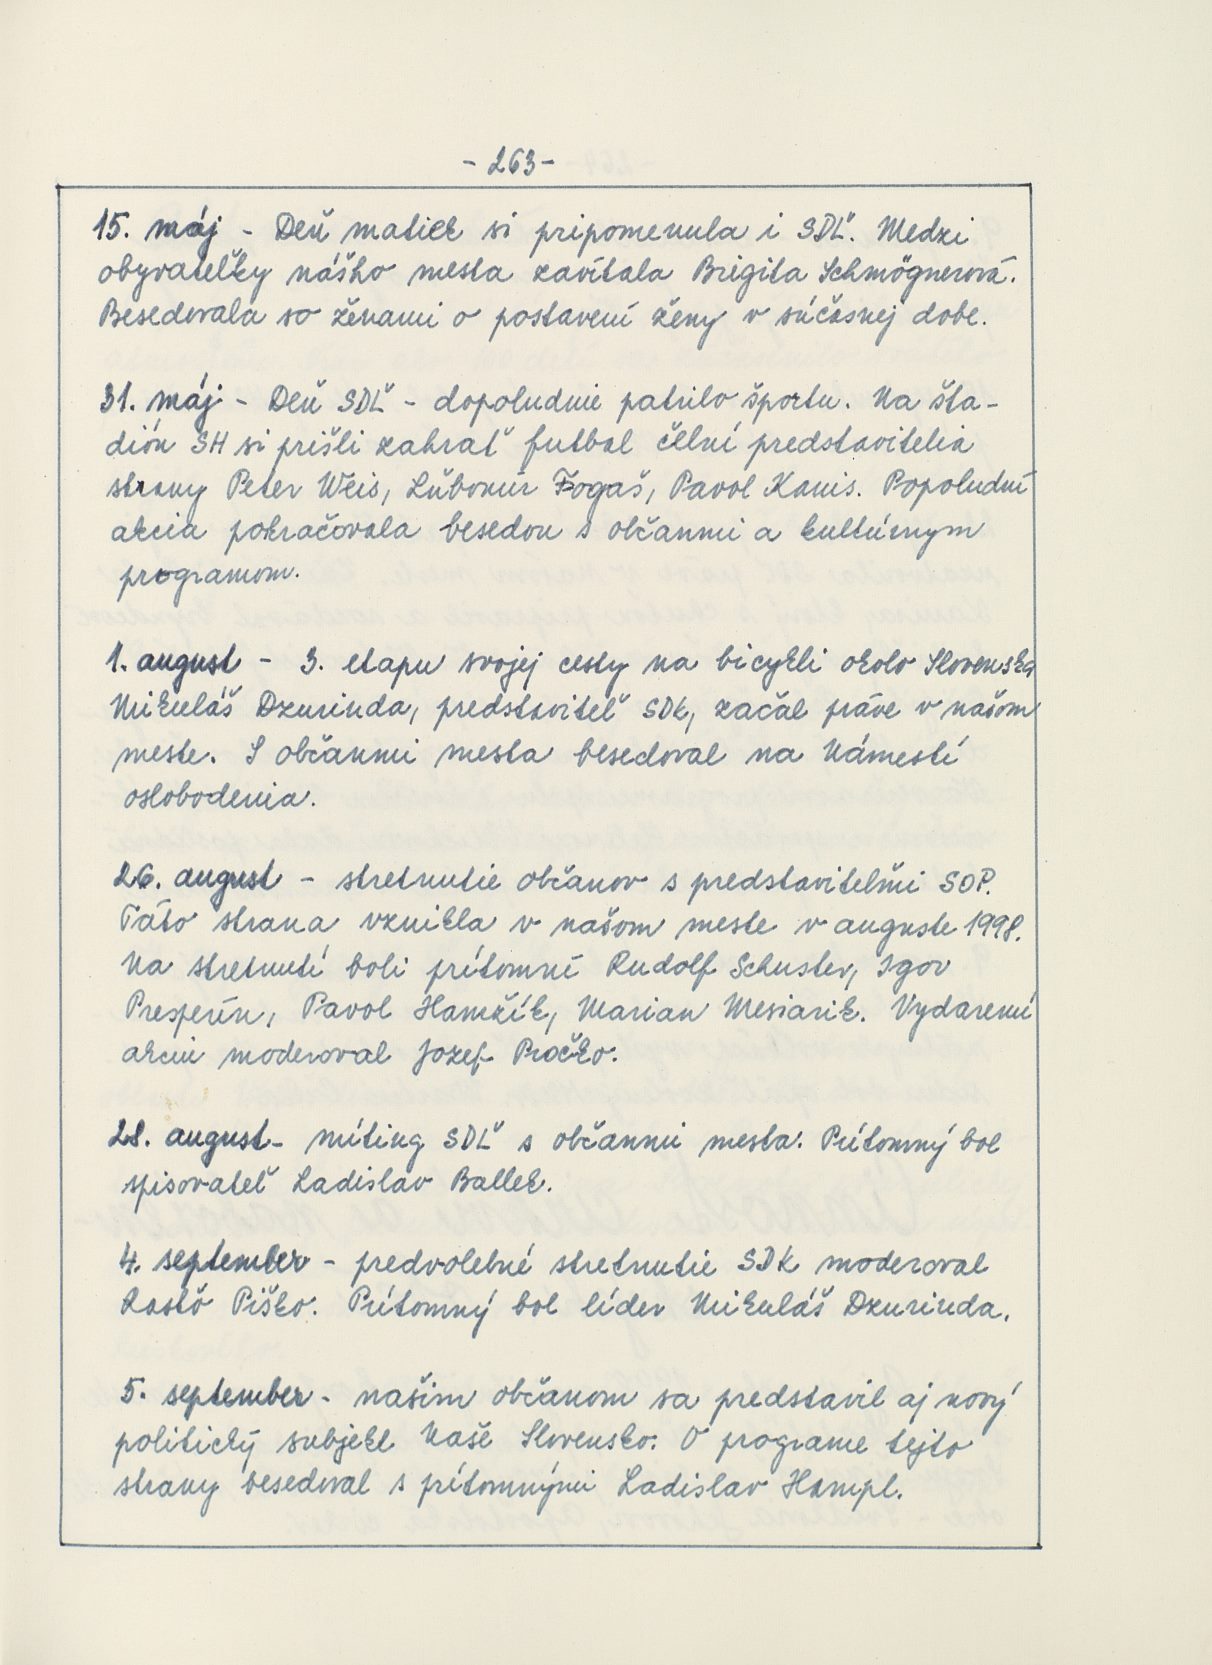 - 263 -
15. máj - Deň matiek si pripomenula i SDĽ. Medzi
obyvateľky nášho mesta zavítala Brigita Schmögnerová.
Besedovala so ženami o postavení ženy v súčasnej dobe.
31. máj - Deň SDĽ - dopoludnie patrilo športu. Na šta-
dión SH si prišli zahrať futbal čelní predstavitelia
strany Peter Weis, Ľubomír Fogaš, Pavol Kanis. Popoludní
akcia pokračovala besedou s občanmi a kultúrnym
programom.
1. august - 3. etapu svojej cesty na bicykli okolo Slovenska
Mikuláš Dzurinda, predstaviteľ SDK, začal práve v našom
meste. S občanmi mesta besedoval na Námestí
oslobodenia.
26. august - stretnutie občanov s predstaviteľmi SOP.
Táto strana vznikla v našom meste v auguste 1998.
Na stretnutí boli prítomní Rudolf Schuster, Igor
Presperín, Pavol Hamžík, Marian Mesiarik. Vydarenú
akciu moderoval Jozef Pročko.
28. august - míting SDĽ s občanmi mesta. Prítomný bol
spisovateľ Ladislav Ballek.
4. september - predvolebné stretnutie SDK moderoval
Rasťo Piško. Prítomný bol líder Mikuláš Dzurinda.
5. september - našim občanom sa predstavil aj nový
politický subjekt Naše Slovensko. O programe tejto
strany besedoval s prítomnými Ladislav Hampl.